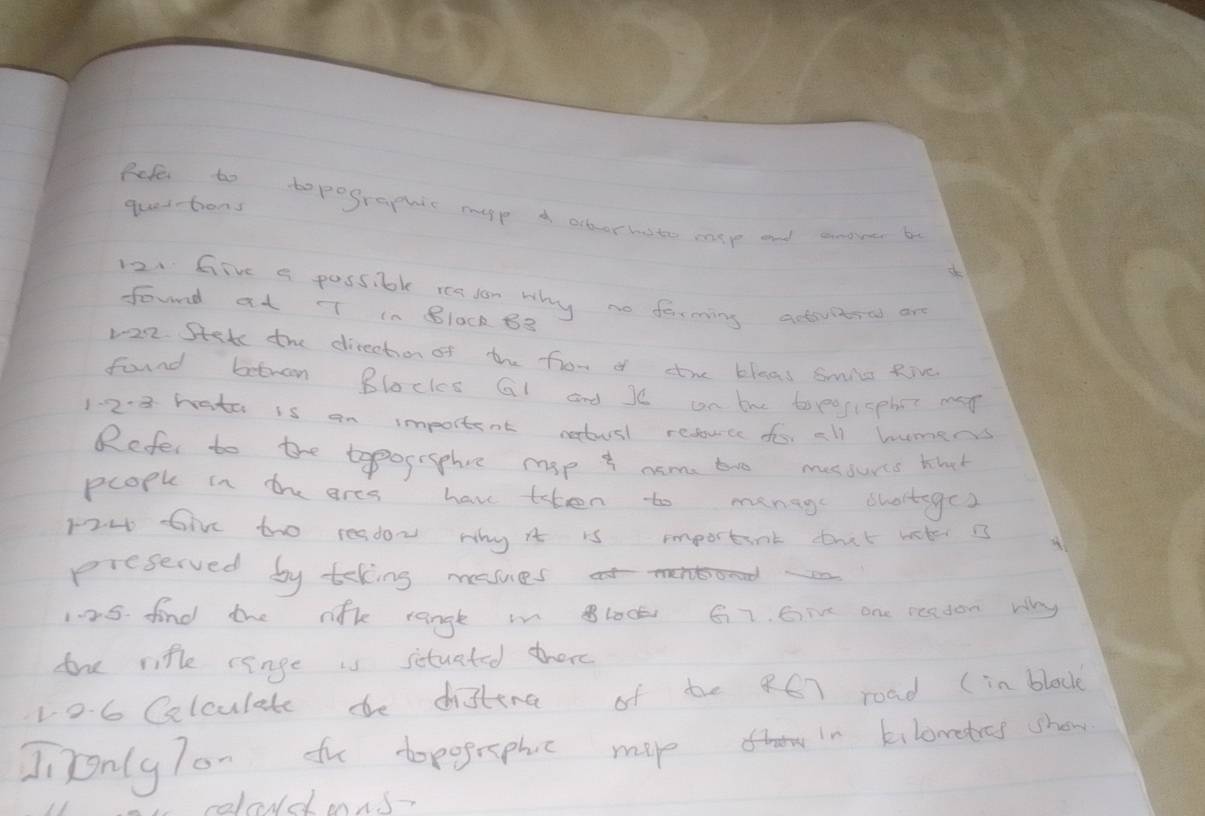 Refer to topographic map & orthorhoto map and answer be
questions
1.2.1. Give a possible reason why no farming activities are
found at T in Block B3
1.2.2. State the direction of the flow of the klaas Smits River
found between Blocks G1 and J6 on the topographic map
1.2.3 water is an important natural resource for all humans
Refer to the topographic map & name two measures that
people in the area have taken to manage shortages
1.2.4 Give two reason why it is important that water is
preserved by taking measures
1.2.5. find the rifle range in Block G7. Give one reason why
the rifle range is situated there
1.2.6 Calculate the distance of the R67 road (in block
I1 only) on the topographic map in kilometres show
calculations-